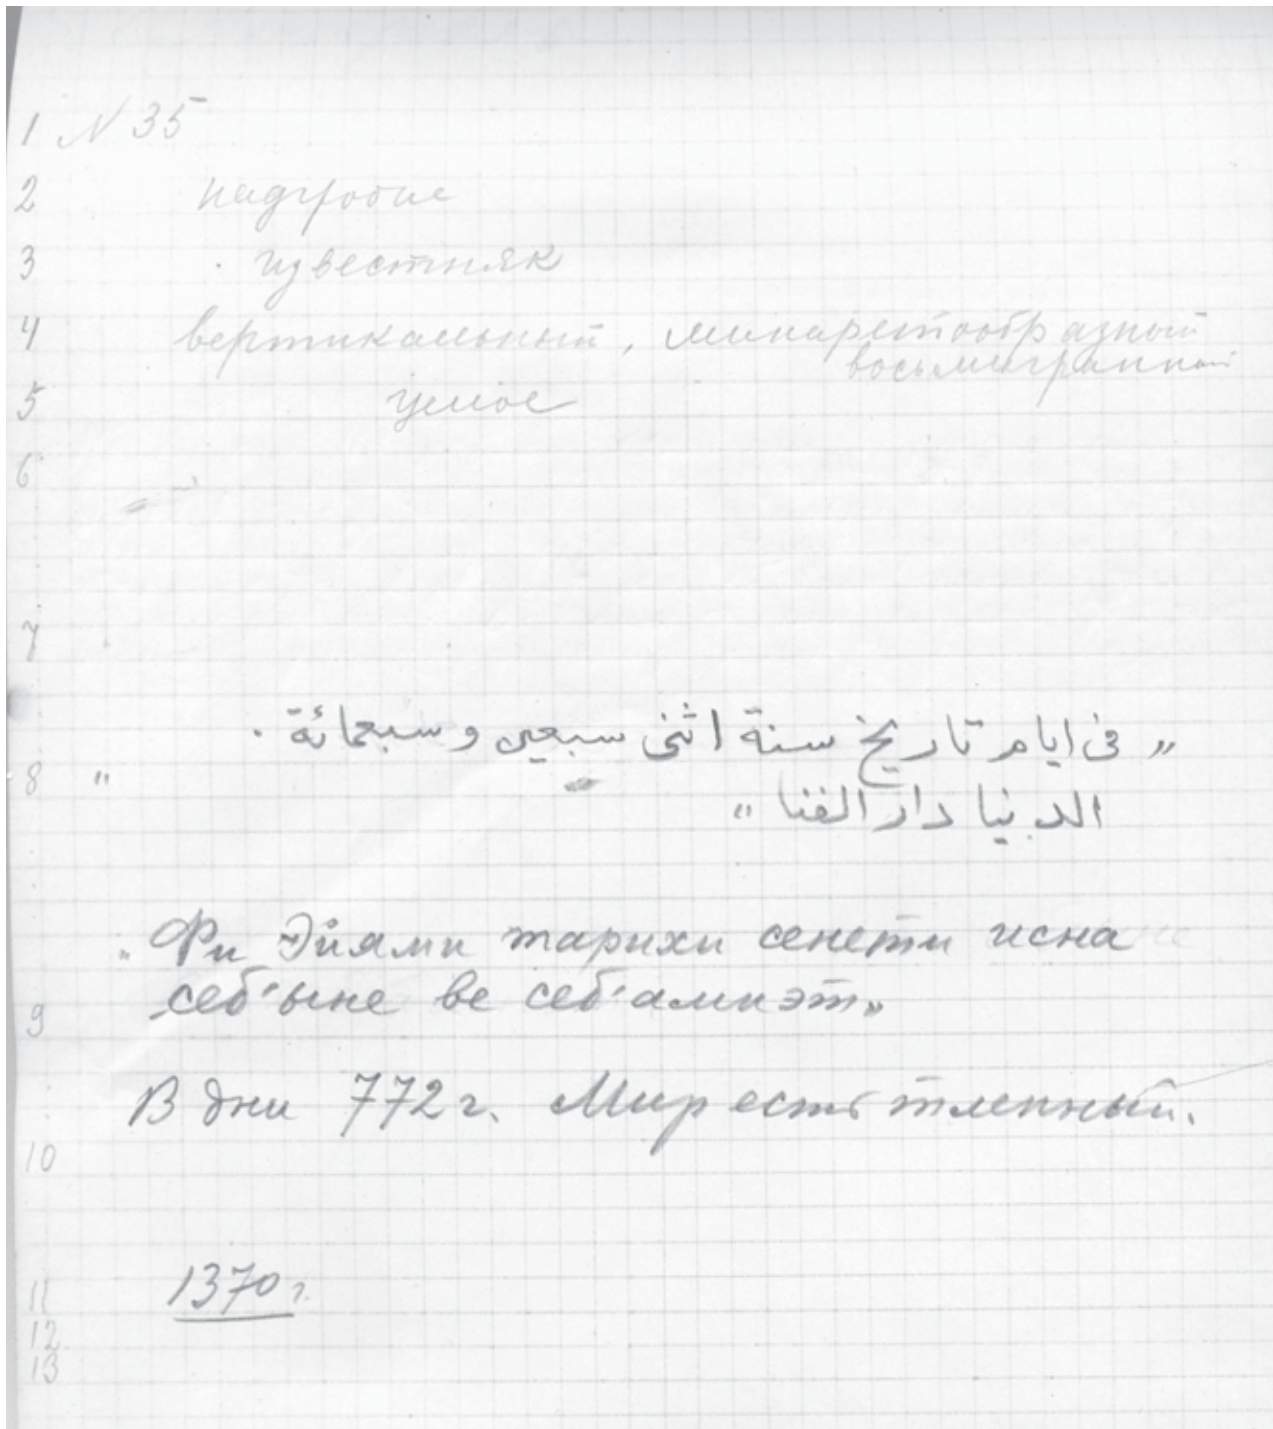 1 N 35
2 надгробие
3 известняк
4 вертикальный, минаретообразный
восьмигранный
5 целое
6
7
„ فى ايام تاريخ سنة اثنى سبعين و سبعمائة .
8 "
الدنيا دار الفنا "
„ Фи Эйями тарихи сенети исна
себ'ыне ве себ'амиэт"
9
В дни 772 г. Мир есть тленный.
10
1370 г.
11
12
13